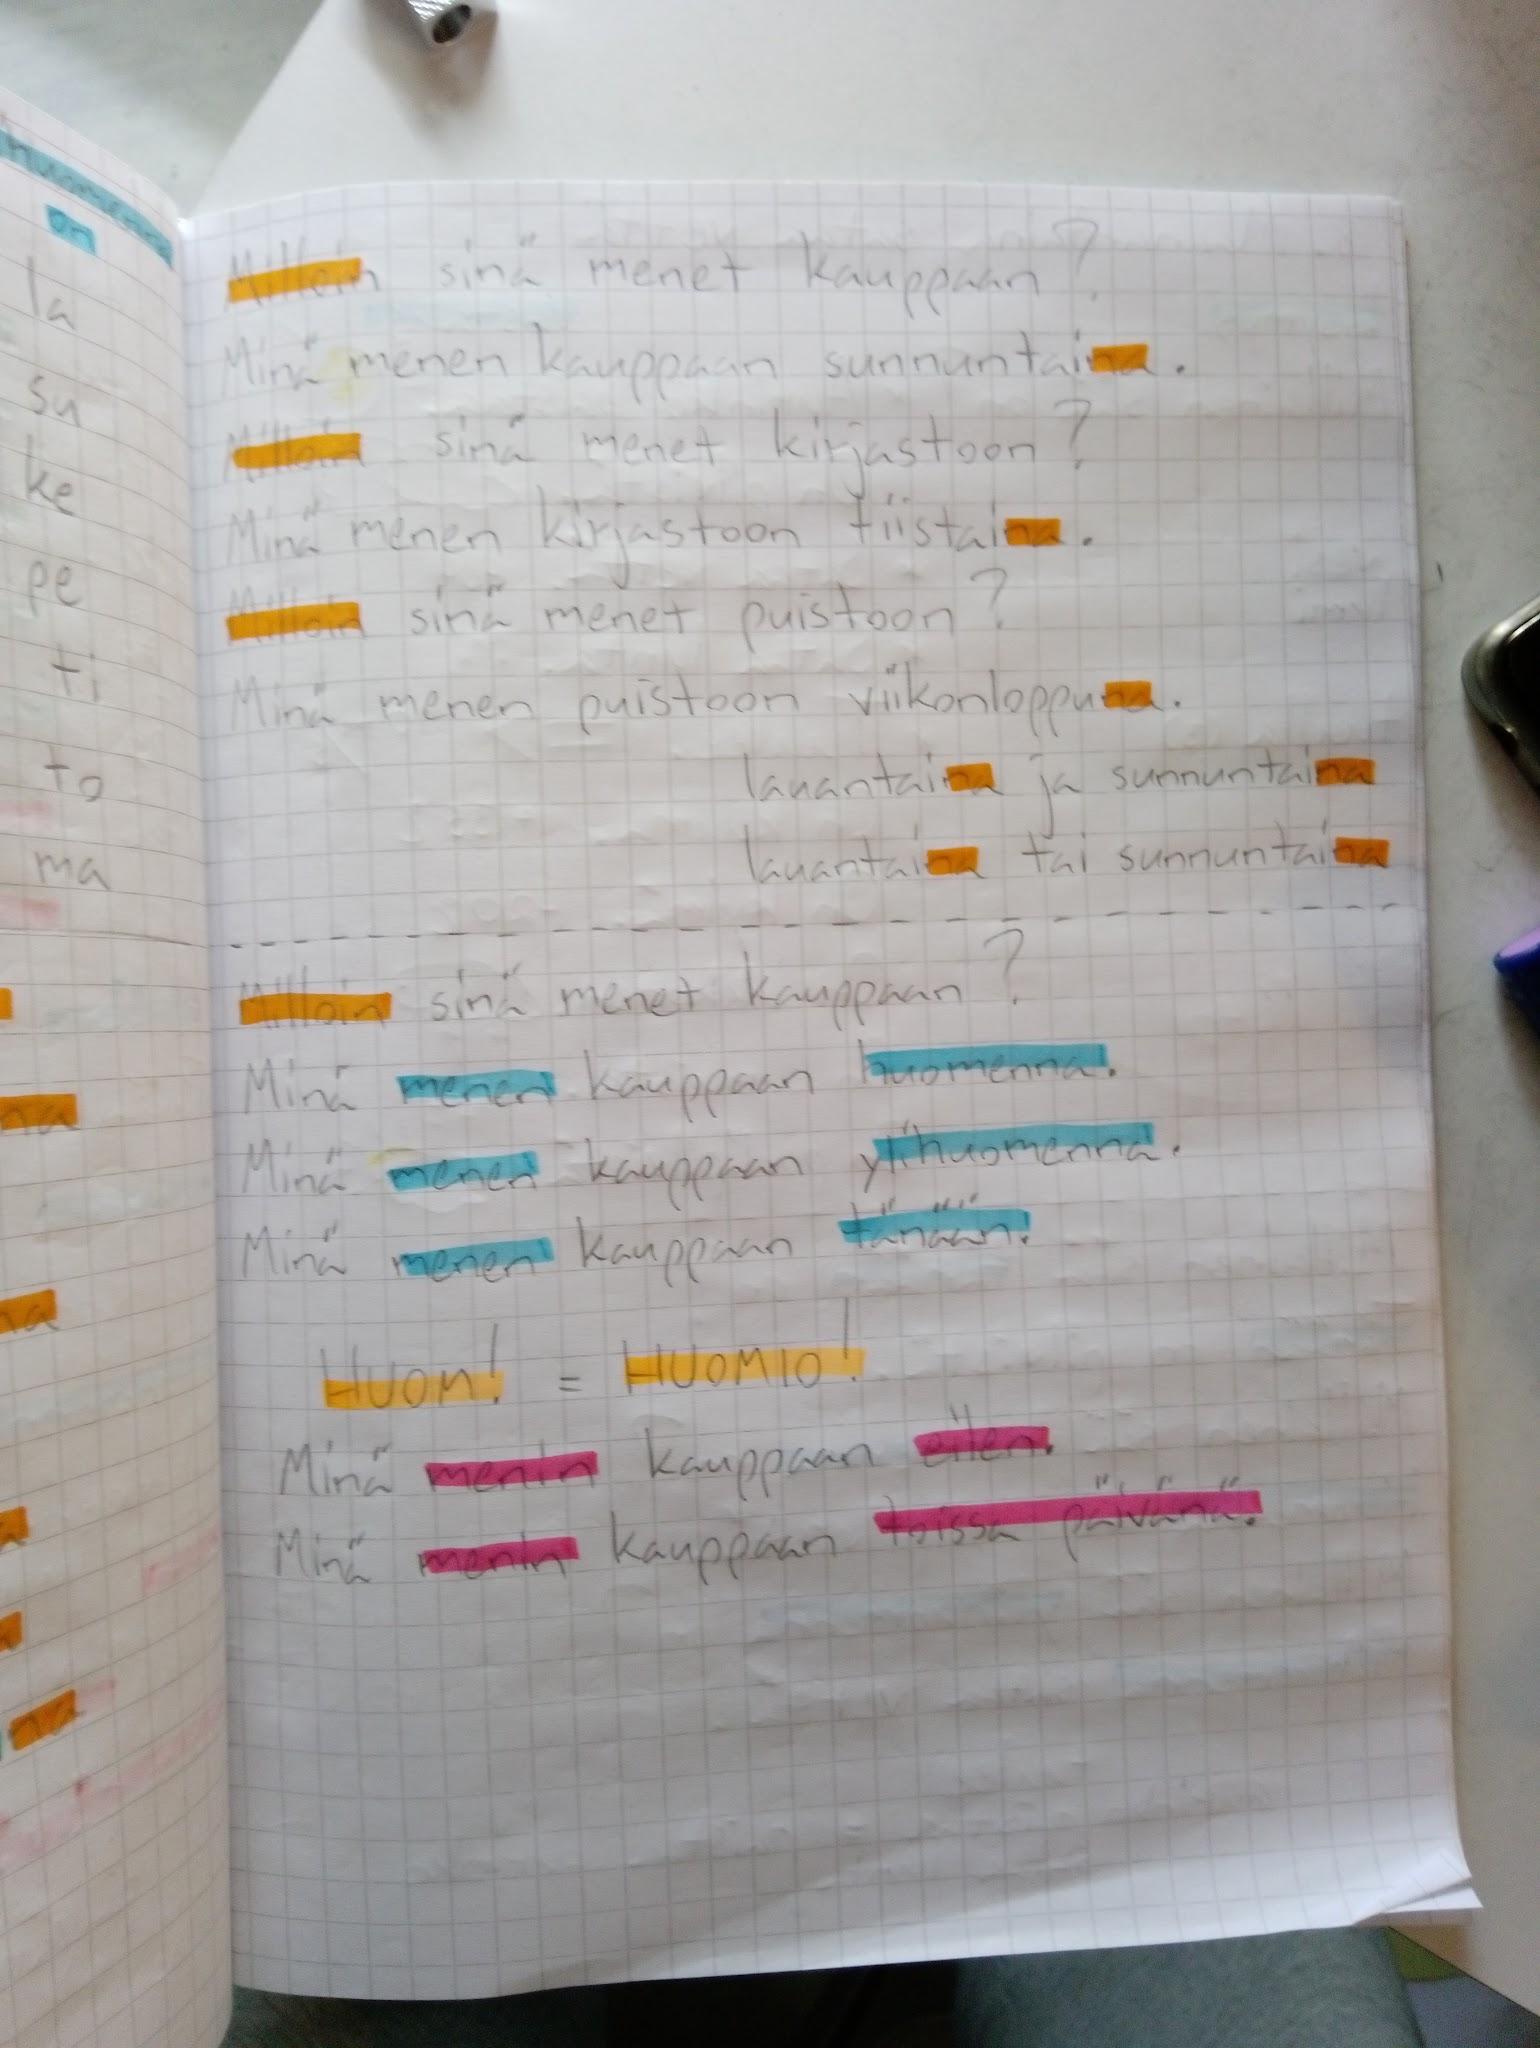 huomenna
on
la
su
ke
pe
ti
to
ma
na
na
na
Milloin sinä menet kauppaan?
Minä menen kauppaan sunnuntaina.
Milloin sinä menet kirjastoon?
Minä menen kirjastoon tiistaina.
Milloin sinä menet puistoon?
Minä menen puistoon viikonloppuna.
lauantaina ja sunnuntaina
lauantaina tai sunnuntaina
Milloin sinä menet kauppaan?
Minä menen kauppaan huomenna.
Minä menen kauppaan ylihuomenna.
Minä menen kauppaan tänään.
HUOM! = HUOMIO!
Minä menin kauppaan eilen.
Minä menin kauppaan toissa päivänä.